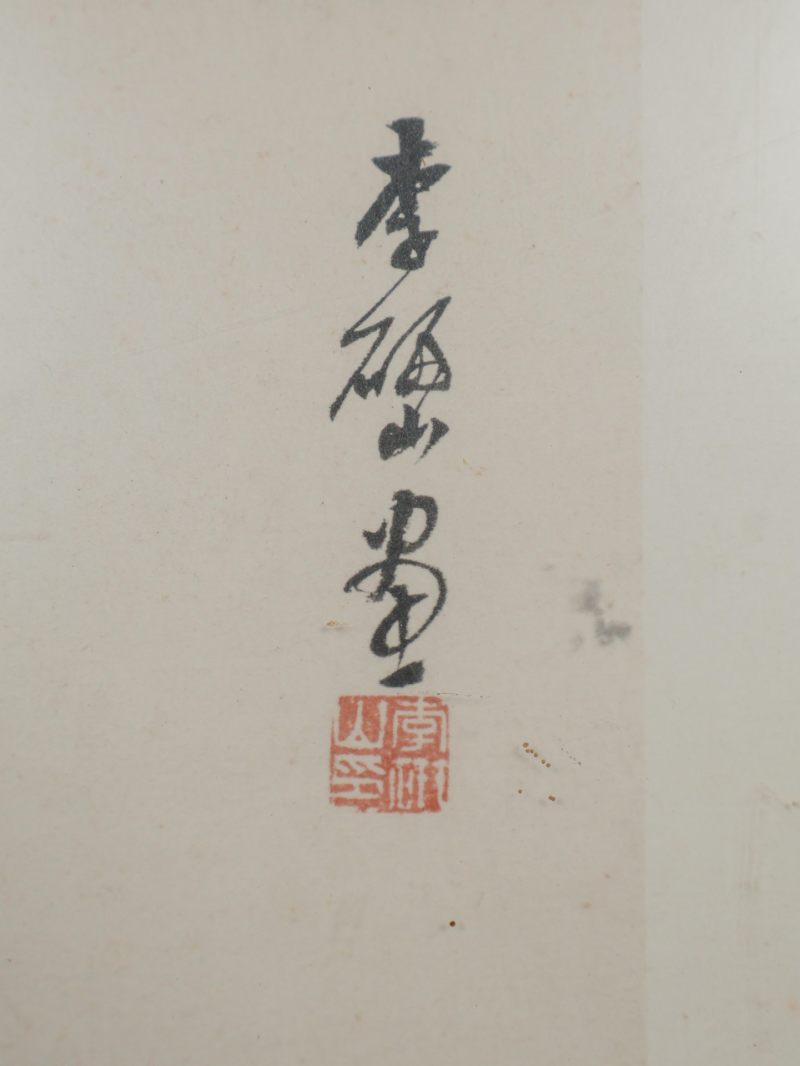 李研山畫
李研山印